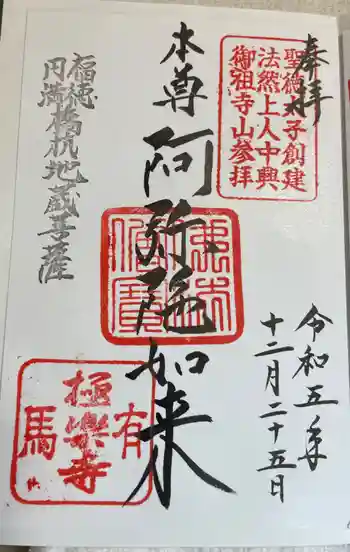 奉拝
聖徳太子創建
法然上人中興
御祖寺山参拝
本尊
阿弥陀如来
福徳
円満
橋杭地蔵菩薩
佛法僧寶
令和五年
十二月二十五日
有馬
極楽寺